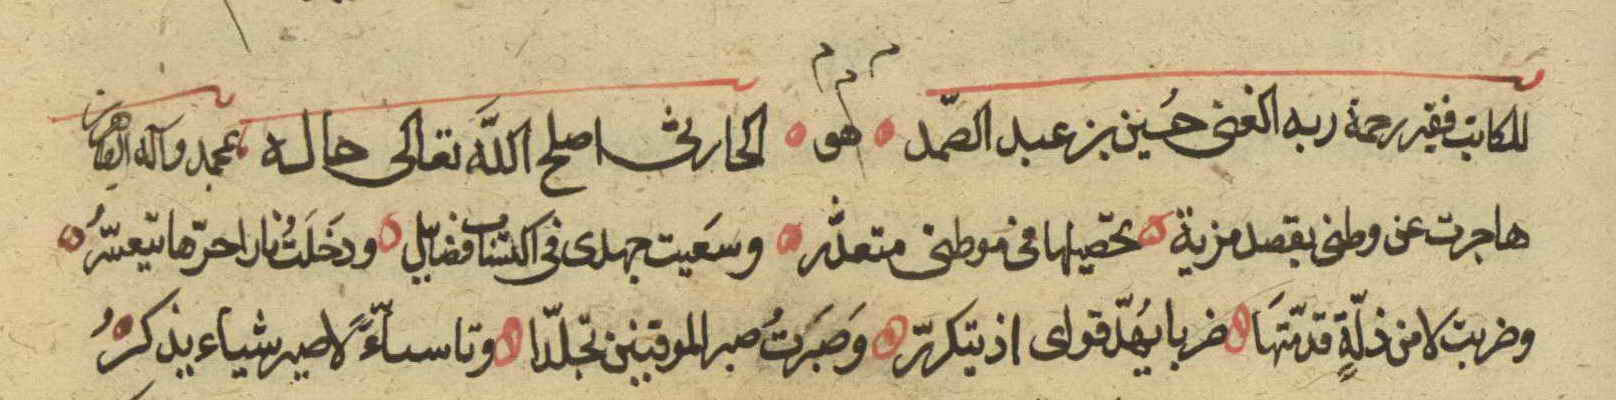 للكاتب فقير رحمة ربه الغنى حُسين بن عبد الصّمد هو الحارثى اصلح اللَّه تعالى حاله بمحمد وآله الطاهرين
هاجرت عن وطنى بقصد مزية تحصيلها فى موطنى متعذّر وسَعيت جهدى فى اكتساب فضايل ودَخَلتُ نارا حرّها يتيعسّرُ
وضربت لا من ذلّةٍ قدّمتهَا ضربا يهُدّ قواى اذ يتكرّر وَصَبَرتُ صبر الموقنين تجلّدا وتاسياً لاصير شياء يذكرُ